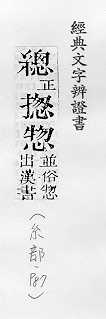 經典文字辨證書
緫正揔惣並俗惣出漢書
(糸部·P87)